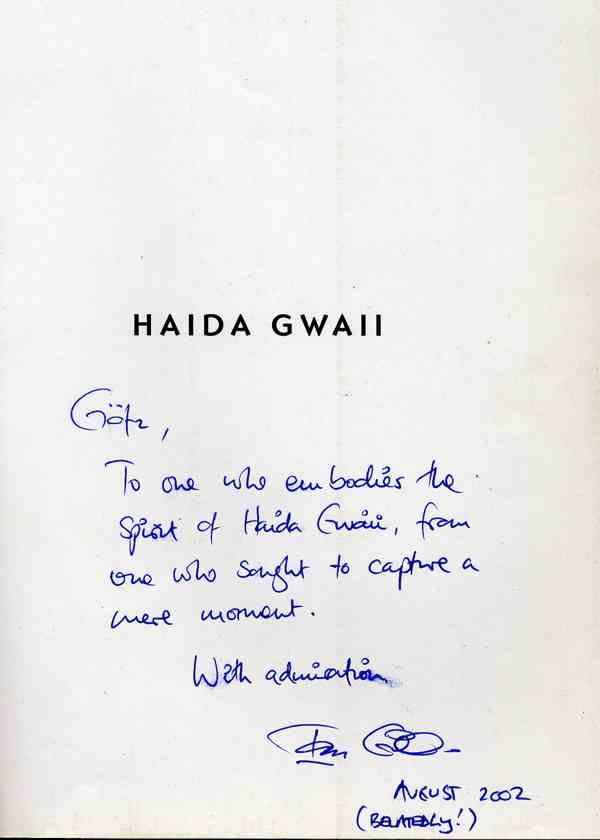 HAIDA GWAII
Götz,
To one who embodies the
Spirit of Haida Gwaii, from
one who sought to capture a
mere moment.
With admiration
Ian
AUGUST 2002
(BELATEDLY!)